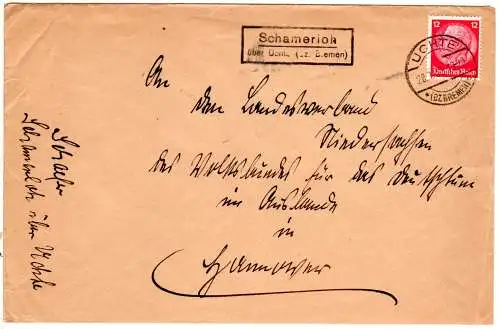 Schamerloh
über Uchte (Bz. Bremen)
12 12
Deutsches Reich
UCHTE
(BZ. BREMEN)
An
den Landesverband
Niedersachsen
des Volksbundes für das Deutschtum
im Auslande
in
Hannover
Schamerloh über Uchte